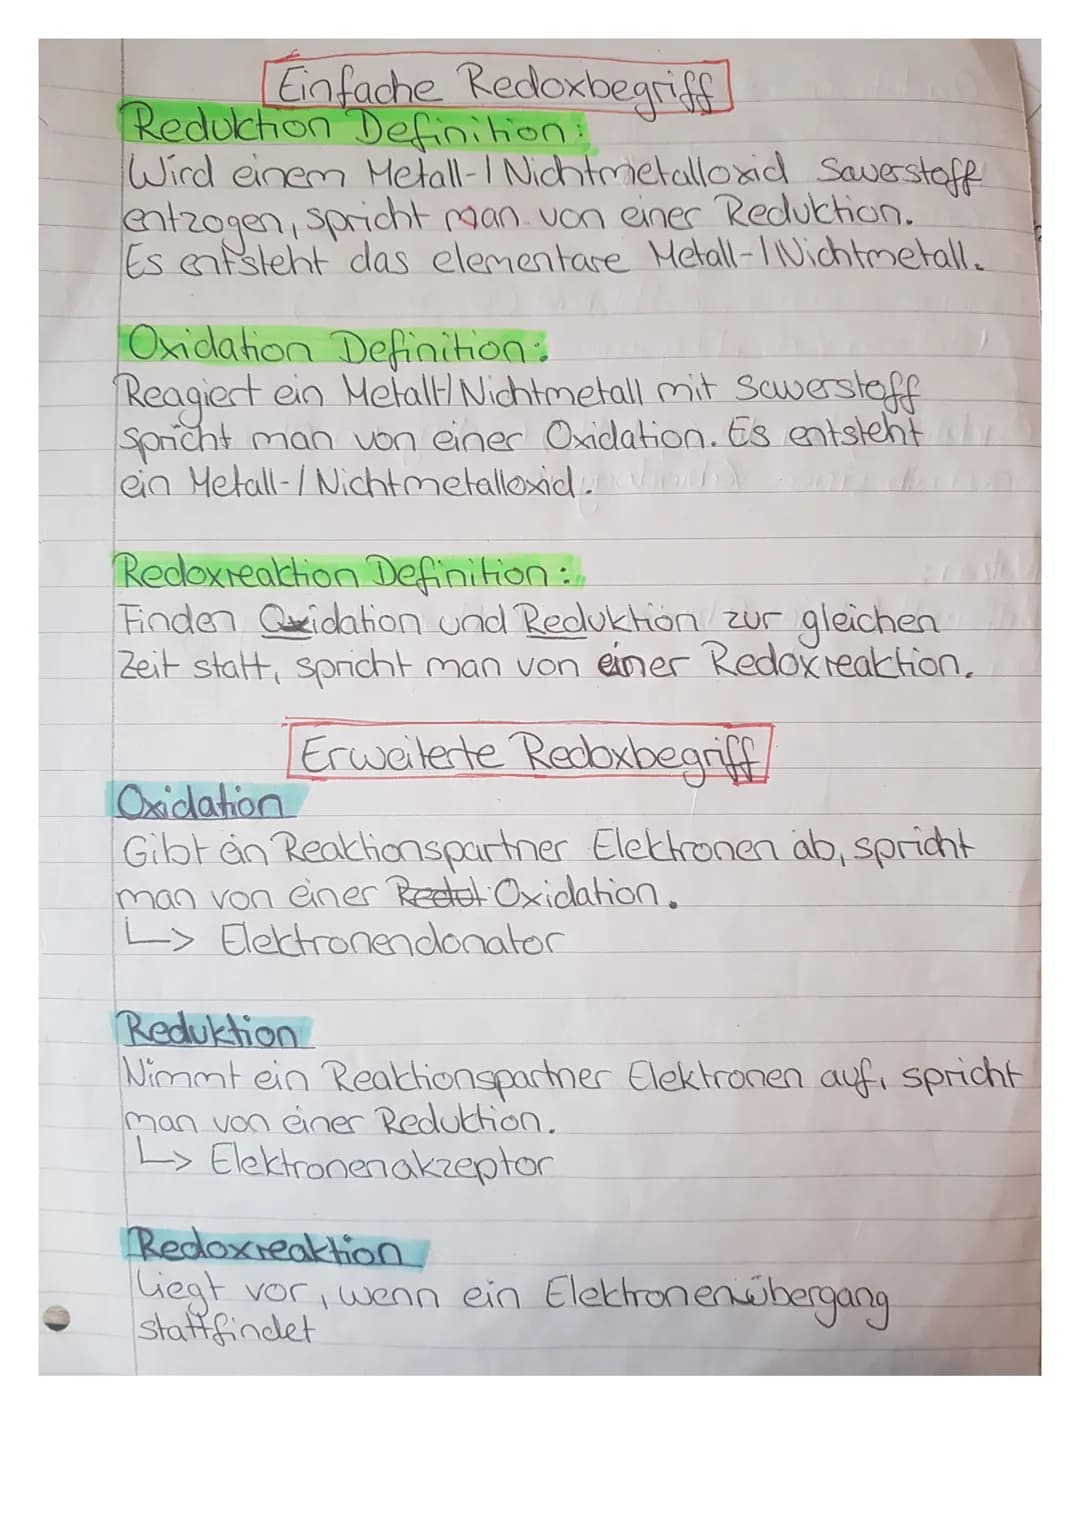 Einfache Redoxbegriff
Reduktion Definition:
Wird einem Metall-/Nichtmetalloxid Sauerstoff
entzogen, spricht man von einer Reduktion.
Es entsteht das elementare Metall-/Nichtmetall.
Oxidation Definition:
Reagiert ein Metall-/Nichtmetall mit Sauerstoff
spricht man von einer Oxidation. Es entsteht
ein Metall-/Nichtmetalloxid.
Redoxreaktion Definition:
Finden Oxidation und Reduktion zur gleichen
Zeit statt, spricht man von einer Redoxreaktion.
Erweiterte Redoxbegriff
Oxidation
Gibt ein Reaktionspartner Elektronen ab, spricht
man von einer Oxidation.
↳ Elektronendonator
Reduktion
Nimmt ein Reaktionspartner Elektronen auf, spricht
man von einer Reduktion.
↳ Elektronenakzeptor
Redoxreaktion
Liegt vor, wenn ein Elektronenübergang
stattfindet